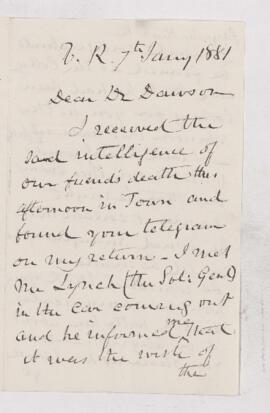 T. R. 7th Jany 1881
Dear Dr Dawson
I received the
sad intelligence of
our friend's death this
afternoon in Town and
found your telegram
on my return - I met
Mr Lynch (the Sol: Genl)
in the Car coming out
and he informed me that
it was the wish of
the